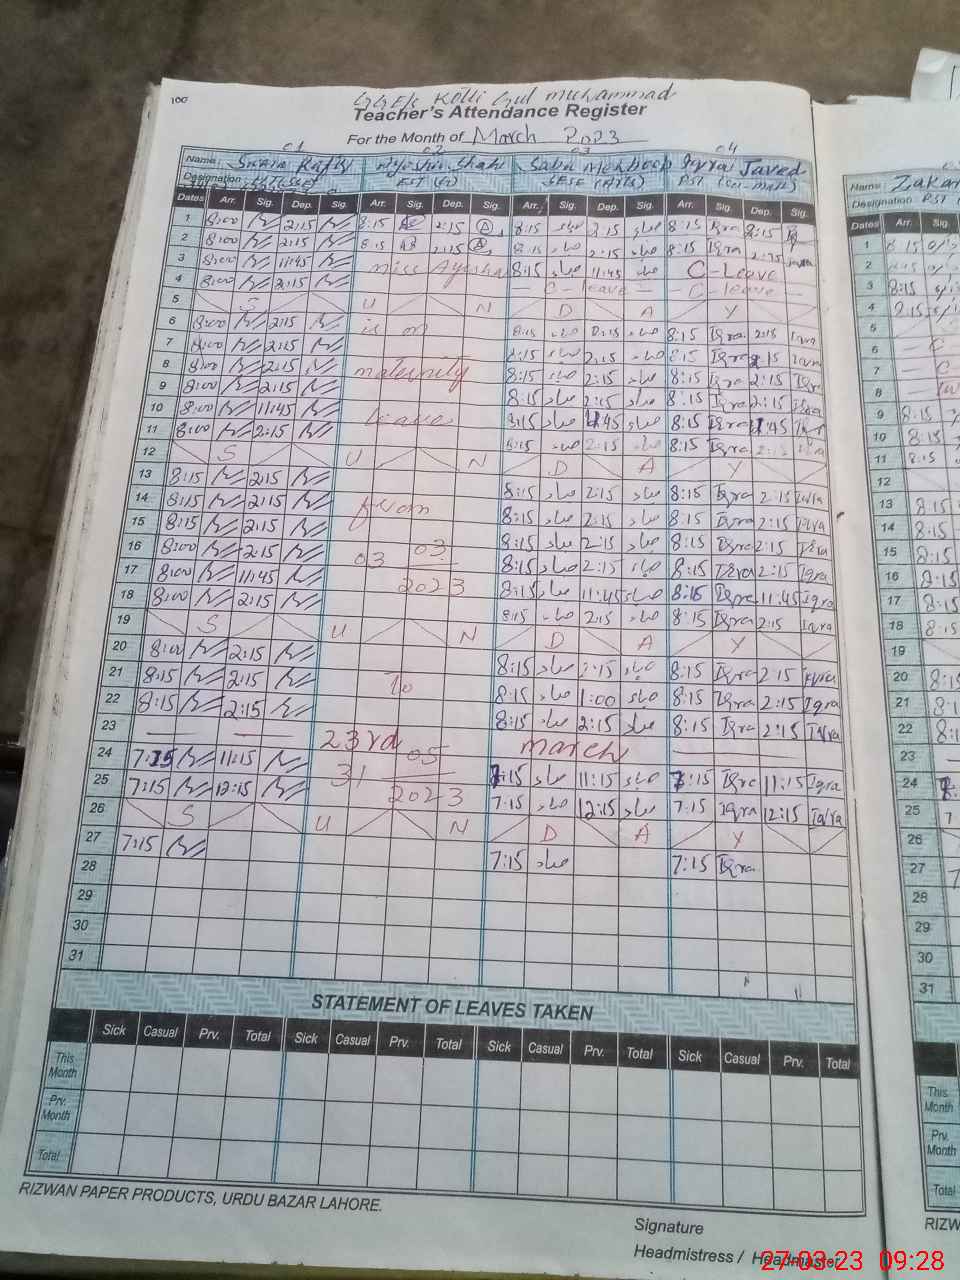 100
Kolli Gul muhammad
Teacher's Attendance Register
For the Month of March 2023
01 02 03 04
Name: Ayesha Shahi Saba Mehboob Iqra Javed
Designation EST SESE (Arts) PST
Dates Arr. Sig. Dep. Sig. Arr. Sig. Dep. Sig. Arr. Sig. Dep. Sig. Arr. Sig. Dep. Sig.
1 8:00 2:15 8:15 2:15 A 8:15 صباء 2:15 صباء 8:15 Iqra 2:15
2 8:00 2:15 8:15 2:15 A 8:15 صباء 2:15 صباء 8:15 Iqra 2:15
3 8:00 11:45 miss Ayesha 8:15 صباء 11:45 صباء C-Leave
4 8:00 2:15 — C-leave — — C-leave —
5 S U N D A Y
6 8:00 2:15 is on 8:15 صباء 2:15 صباء 8:15 Iqra 2:15 Iqra
7 8:00 2:15 8:15 صباء 2:15 صباء 8:15 Iqra 2:15 Iqra
8 8:00 2:15 maternity 8:15 صباء 2:15 صباء 8:15 Iqra 2:15 Iqra
9 8:00 2:15 8:15 صباء 2:15 صباء 8:15 Iqra 2:15 Iqra
10 8:00 11:45 leave 8:15 صباء 11:45 صباء 8:15 Iqra 11:45 Iqra
11 8:00 2:15 8:15 صباء 2:15 صباء 8:15 Iqra 2:15 Iqra
12 S U N D A Y
13 8:15 2:15 8:15 صباء 2:15 صباء 8:15 Iqra 2:15 Iqra
14 8:15 2:15 from 8:15 صباء 2:15 صباء 8:15 Iqra 2:15 Iqra
15 8:15 2:15 8:15 صباء 2:15 صباء 8:15 Iqra 2:15 Iqra
16 8:00 2:15 03 03 8:15 صباء 2:15 صباء 8:15 Iqra 2:15 Iqra
17 8:00 11:45 2023 8:15 صباء 11:45 صباء 8:15 Iqra 11:45 Iqra
18 8:00 2:15 8:15 صباء 2:15 صباء 8:15 Iqra 2:15 Iqra
19 S U N D A Y
20 8:00 2:15 8:15 صباء 2:15 صباء 8:15 Iqra 2:15 Iqra
21 8:15 2:15 To 8:15 صباء 1:00 صباء 8:15 Iqra 2:15 Iqra
22 8:15 2:15 8:15 صباء 2:15 صباء 8:15 Iqra 2:15 Iqra
23 — — 23rd march
24 7:15 11:15 31 05 7:15 صباء 11:15 صباء 7:15 Iqra 11:15 Iqra
25 7:15 12:15 2023 7:15 صباء 12:15 صباء 7:15 Iqra 12:15 Iqra
26 S U N D A Y
27 7:15 7:15 صباء 7:15 Iqra
28
29
30
31
STATEMENT OF LEAVES TAKEN
Sick Casual Prv. Total Sick Casual Prv. Total Sick Casual Prv. Total Sick Casual Prv. Total
This Month
Prv. Month
Total
RIZWAN PAPER PRODUCTS, URDU BAZAR LAHORE.
Signature
Headmistress / Headmaster
Name: Zakar
Designation: PST
Dates Arr. Sig.
1 8:15
2 8:15
3 8:15
4 8:15
5
6 — C
7 — C
8
9 8:15
10 8:15
11 8:15
12
13 8:15
14 8:15
15 8:15
16 8:15
17 8:15
18 8:15
19
20 8:15
21
22
23 —
24
25
26
27
28
29
30
31
This Month
Prv. Month
Total
RIZW
27-03-23 09:28